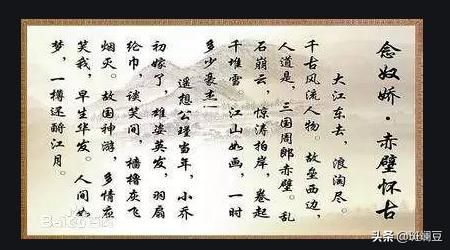 念奴娇·赤壁怀古
大江东去，浪淘尽。
千古风流人物。故垒西边，
人道是，三国周郎赤壁。乱
石崩云，惊涛拍岸，卷起
千堆雪。江山如画，一时
多少豪杰
遥想公瑾当年，小乔
初嫁了，雄姿英发，羽扇
纶巾，谈笑间，樯橹灰飞
烟灭。故国神游，多情应
笑我，早生华发。人间如
梦，一樽还酹江月。
Baidu百科
头条 @斑斓豆